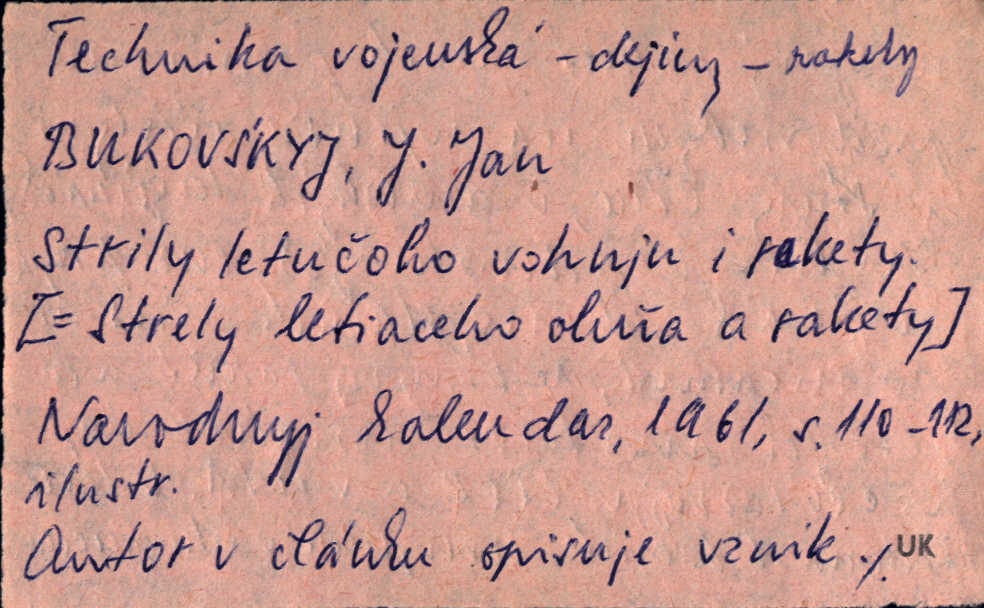 Technika vojenská - dejiny - rakety
BUKOVŚKYJ, J. Jan
Strily letučoho vohnju i rakety.
[= Strely letiaceho ohňa a rakety]
Narodnyj kalendar, 1961, s. 110-112,
ilustr.
Autor v článku opisuje vznik ./.
UK